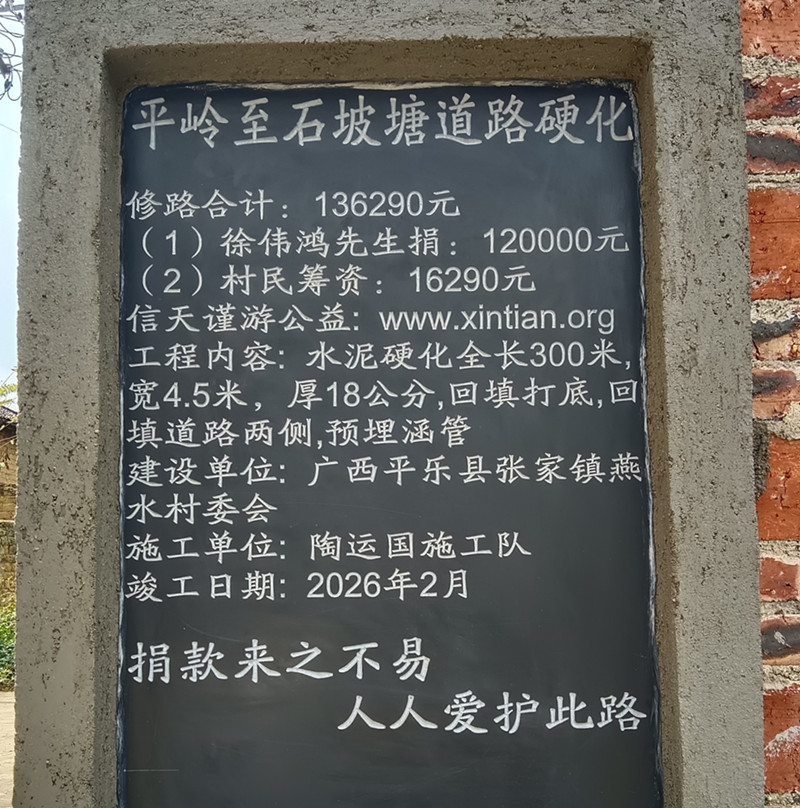 平岭至石坡塘道路硬化
修路合计：136290元
（1）徐伟鸿先生捐：120000元
（2）村民筹资：16290元
信天谨游公益：www.xintian.org
工程内容：水泥硬化全长300米,
宽4.5米，厚18公分,回填打底,回
填道路两侧,预埋涵管
建设单位：广西平乐县张家镇燕
水村委会
施工单位：陶运国施工队
竣工日期：2026年2月
捐款来之不易
人人爱护此路